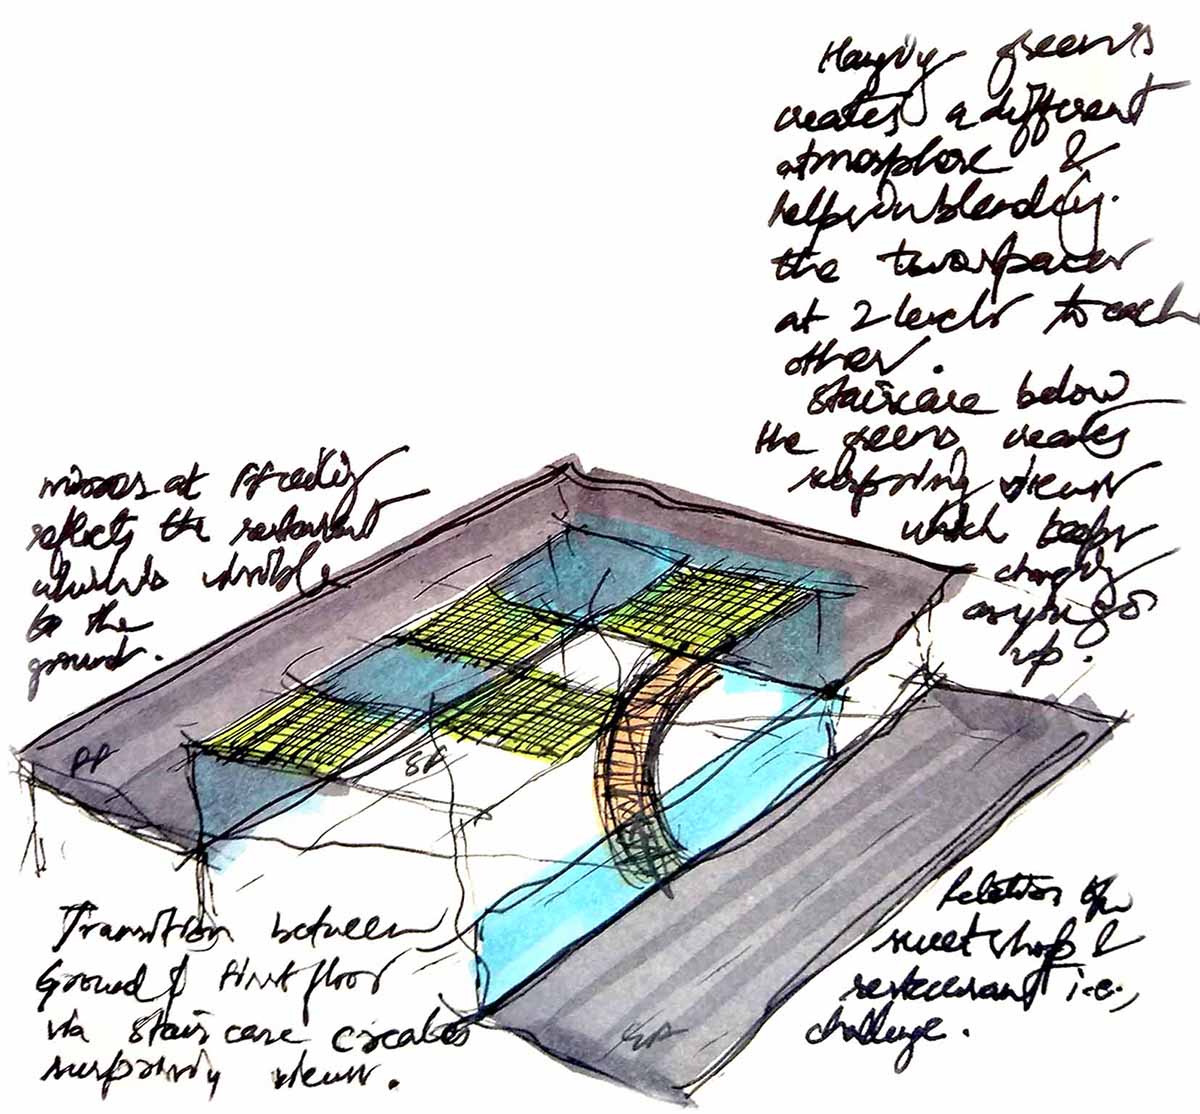 Hanging greens
creates a different
atmosphere &
helps in blending.
the two spaces
at 2 levels to each
other.
staircase below
the greens creates
surprising views
which keeps
changing
as you go
up.
mirrors at ceiling
reflects the restaurant
which is visible
to the
ground.
FF
GF
Transition between
Ground & first floor
via staircase creates
surprising views.
Relation of
sweet shop &
restaurant i.e.,
challenge.